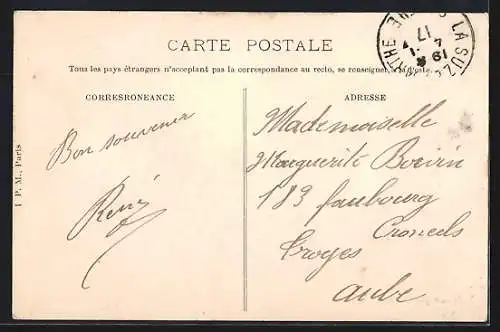 CARTE POSTALE
Tous les pays étrangers n'acceptant pas la correspondance au recto, se renseigner à la Poste.
CORRESRONEANCE
ADRESSE
Bon souvenir
René
Mademoiselle
Marguerite Boivin
183 faubourg
Croncels
Troyes
Aube
I P. M., Paris
LA SUZE
17
4
19